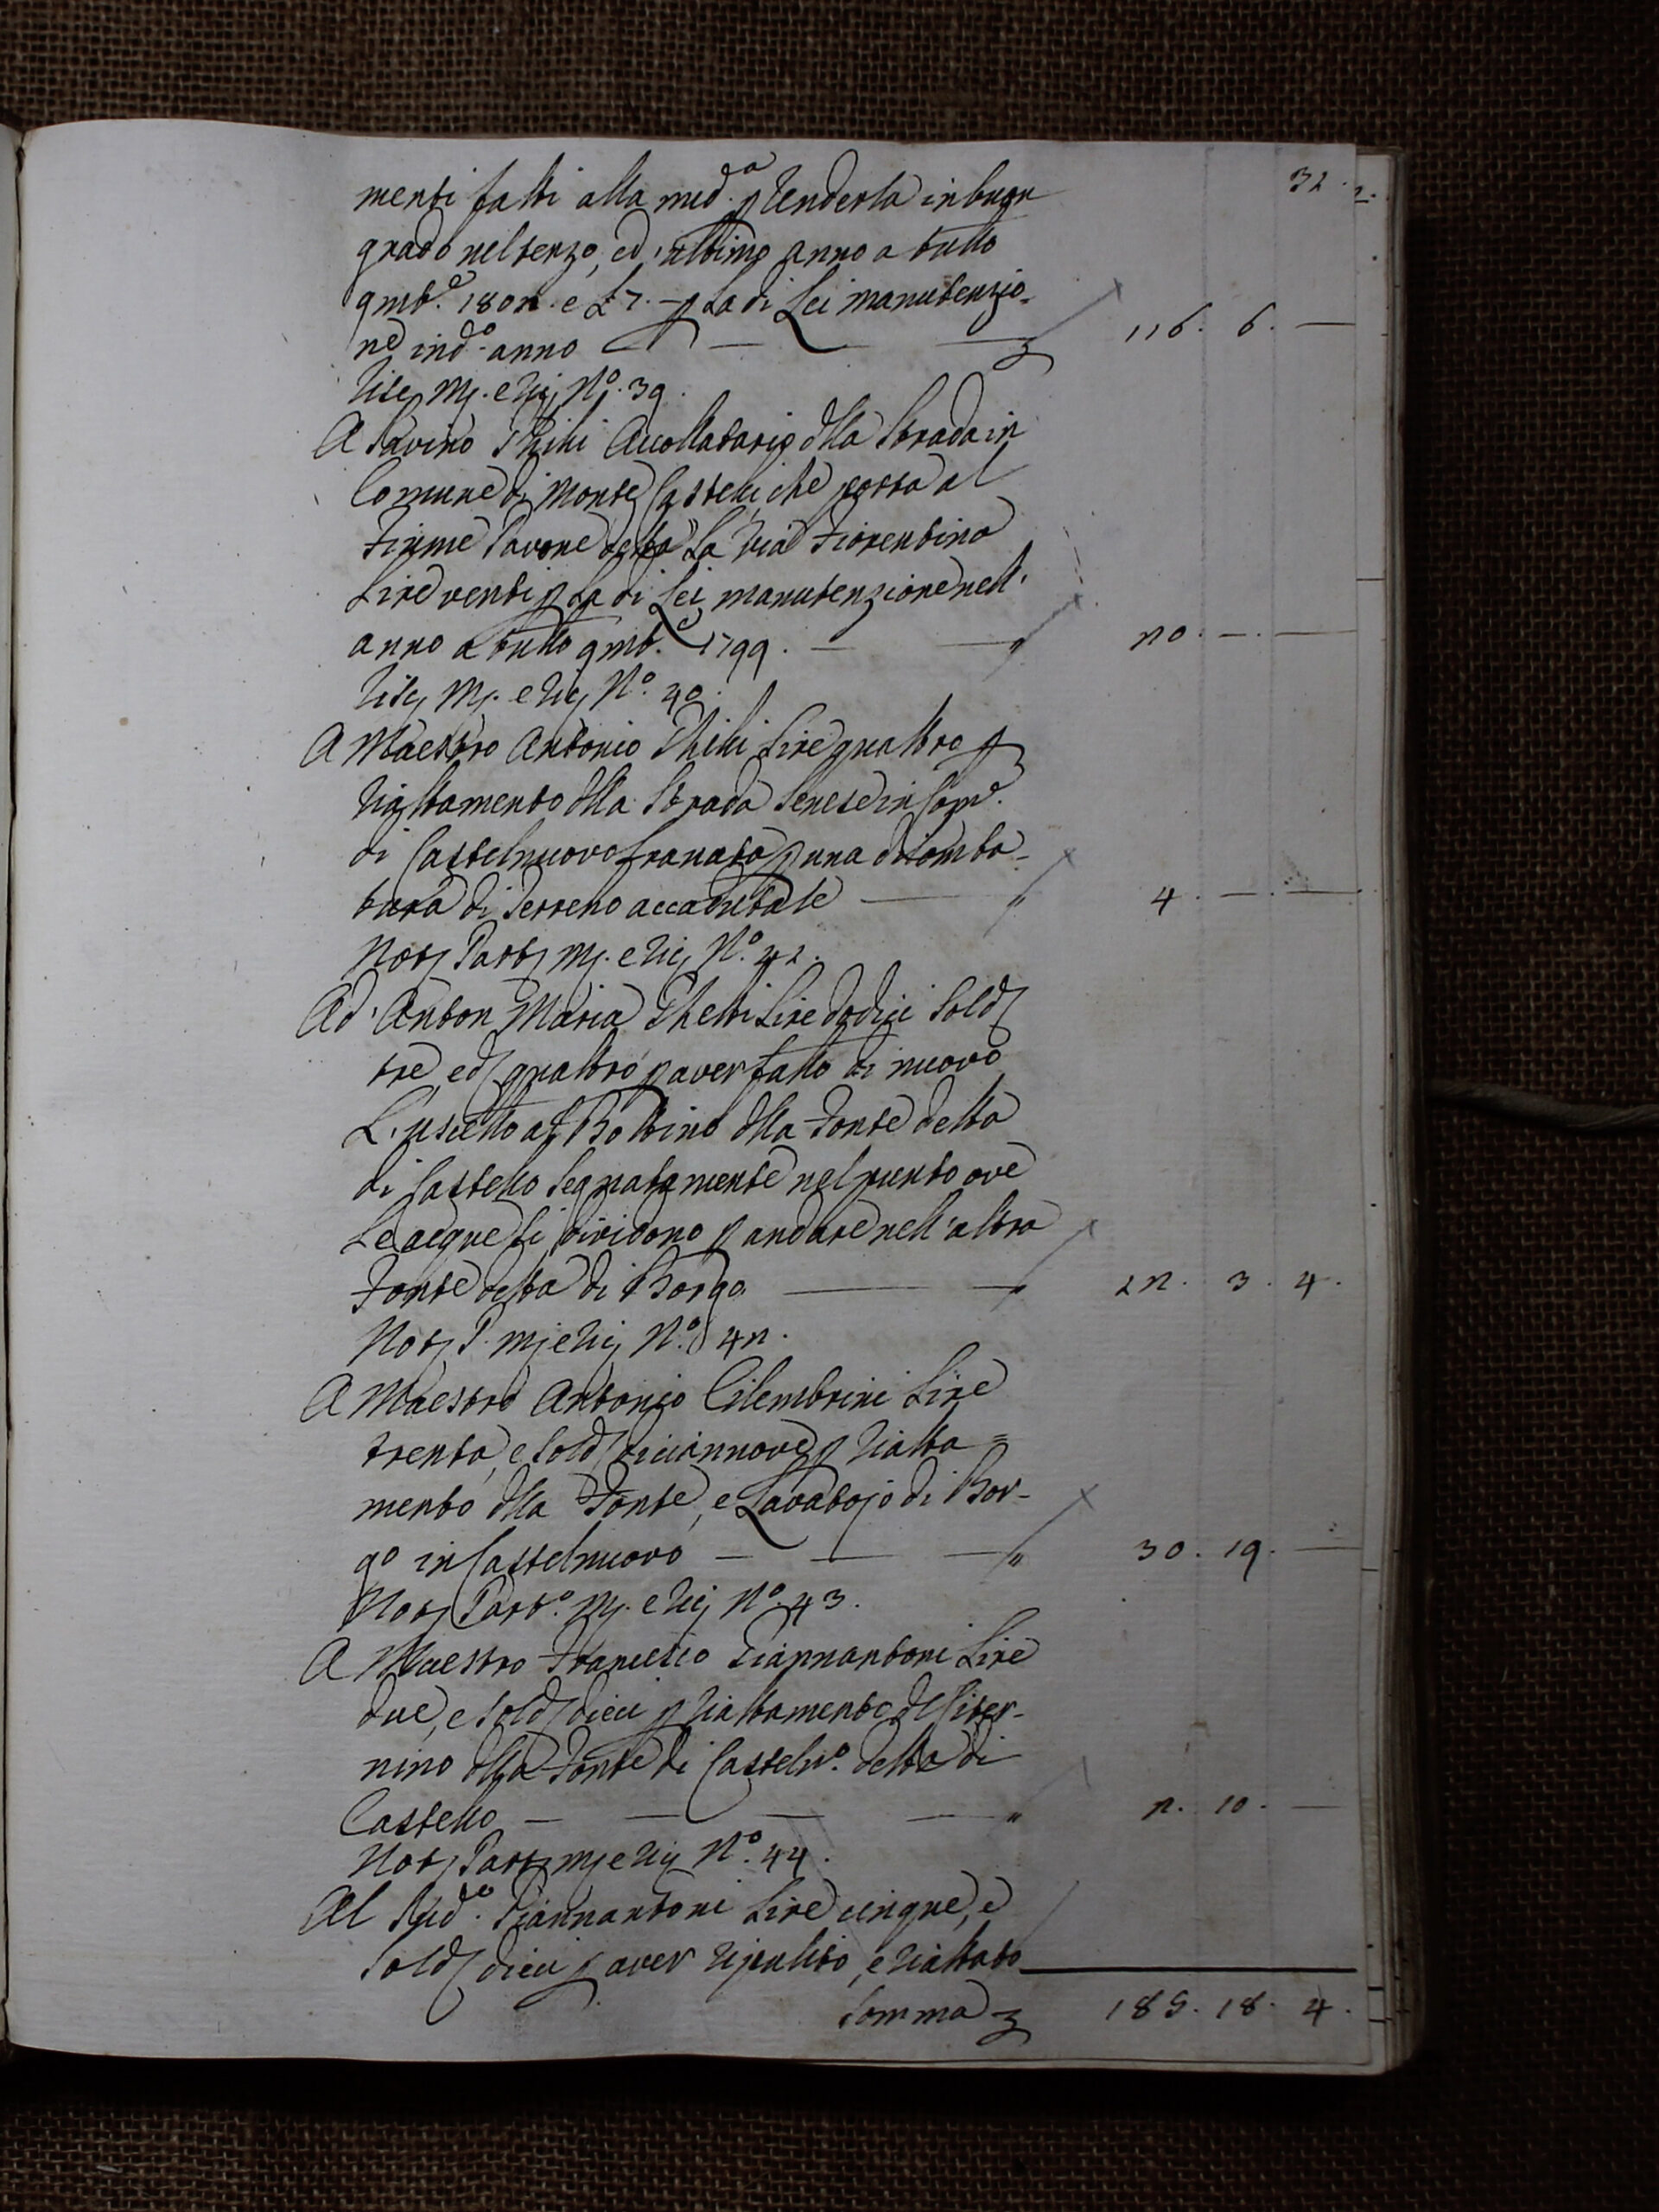 31.
menti fatti alla med.a p renderla in buon
grado nel terzo, ed ultimo anno a tutto
9mb.e 1802. e £ 7. — p la di Lei manutenzio-
ne in d.o anno — — — 116. 6. —
Ris. Mj. e Rij N.o 39.
A Savino Ghilli Accollatario dlla Strada in
Comune di Monte Castelli che porta al
Fiume Pavone detta la Via Fiorentina
Lire venti p la di Lei manutenzione nell'
anno a tutto 9mb.e 1799. — — " 20. —. —
Ris. Mj. e Rij N.o 40.
A Maestro Antonio Ghilli Lire quattro p
Riattamento dlla Strada Senese in Com.e
di Castelnuovo franata p una dilomba-
tura di Terreno accadutale — " 4. —. —
Not. Part. Mj. e Rij N.o 41.
Ad' Anton Maria Ghelli Lire dodici Sold
tre, e d quattro p aver fatto di nuovo
L'uscetto al Bottino dlla Fonte detta
di Castello segnatamente nel punto ove
Le acque si dividono p andare nell'altra
Fonte detta di Borgo — " 12. 3. 4.
Not. P. Mj e Rij N.o 42.
A Maestro Antonio Cilembrini Lire
trenta, e Sold diciannove p Riatta=
mento dlla Fonte, e Lavatojo di Bor-
go in Castelnuovo — — — " 30. 19. —
Not. Part.o Mj. e Rij N.o 43.
A Maestro Francesco Giannantoni Lire
due, e Sold dieci p Riattamento dl Citer-
nino dlla Fonte di Casteln.o detta di
Castello — — — — " 2. 10. —
Not. Part. Mj e Rij N.o 44.
Al Sud.o Giannantoni Lire cinque, e
Sold dieci p aver ripulito, e riattato
Somma 185. 18. 4.